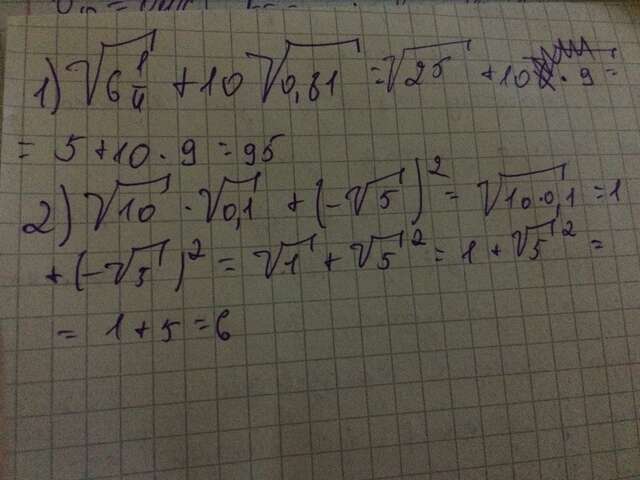 1) √6 1/4 + 10 √0,81 = √25 + 10 · 9 =
= 5 + 10 · 9 = 95
2) √10 · √0,1 + (-√5)² = √10·0,1 = 1
+ (-√5)² = √1 + √5² = 1 + √5² =
= 1 + 5 = 6